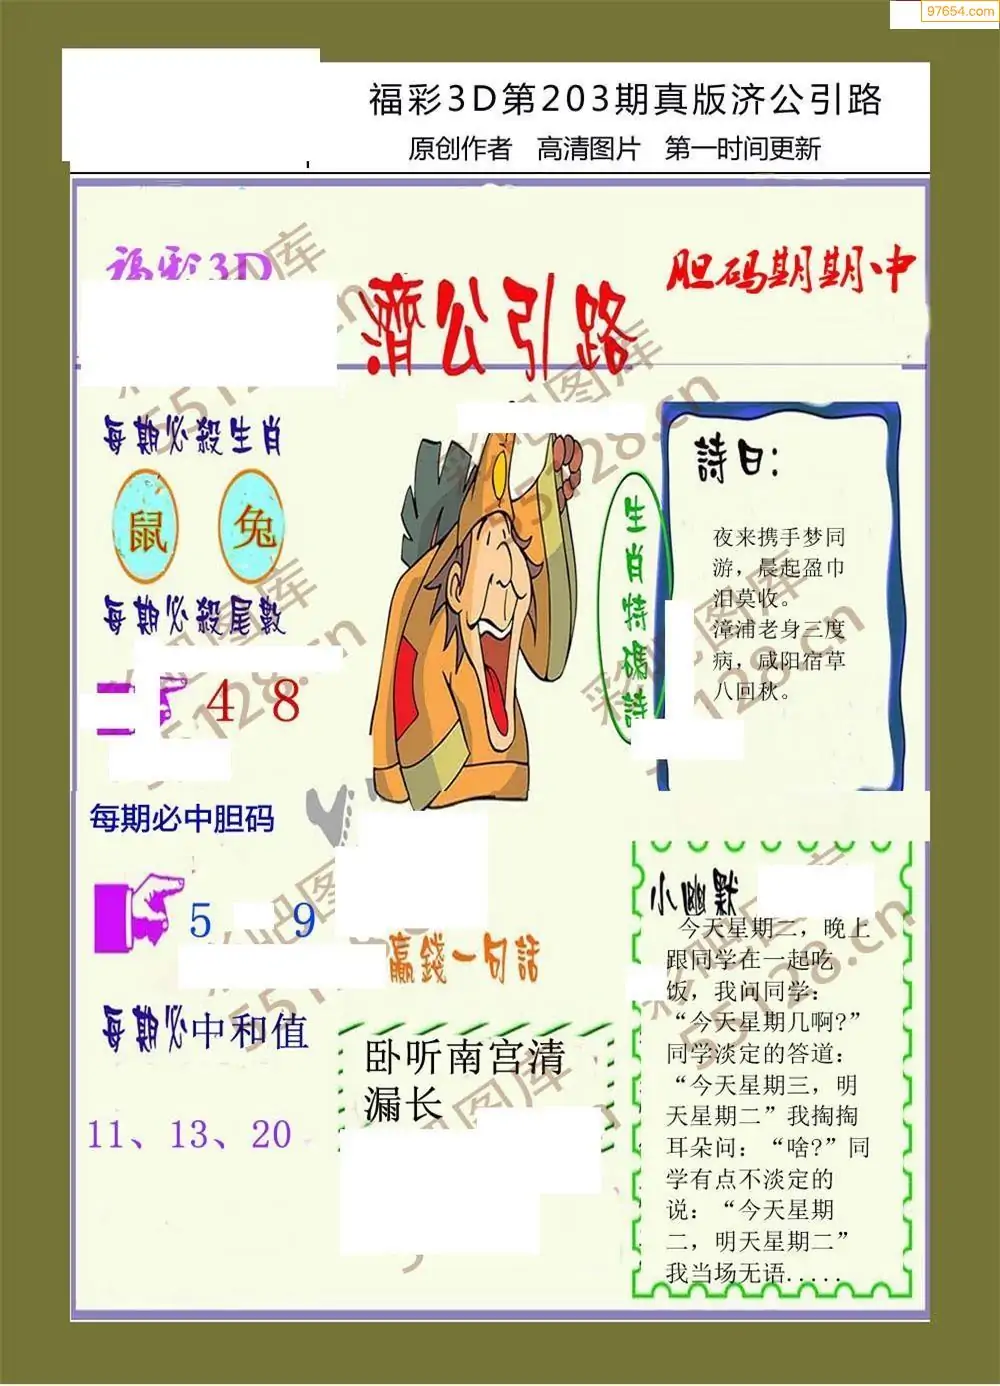 97654.com
福彩3D第203期真版济公引路
原创作者 高清图片 第一时间更新
福彩3D
濟公引路
胆码期期中
每期必殺生肖
鼠 兔
每期必殺尾數
4 8
每期必中胆码
5 9
每期必中和值
11、13、20
生肖特碼詩
詩曰：
夜来携手梦同
游，晨起盈巾
泪莫收。
漳浦老身三度
病，咸阳宿草
八回秋。
赢錢一句話
卧听南宫清
漏长
小幽默
今天星期二，晚上
跟同学在一起吃
饭，我问同学：
“今天星期几啊?”
同学淡定的答道：
“今天星期三，明
天星期二”我掏掏
耳朵问：“啥?”同
学有点不淡定的
说：“今天星期
二，明天星期二”
我当场无语.....
彩吧图库
55128.cn